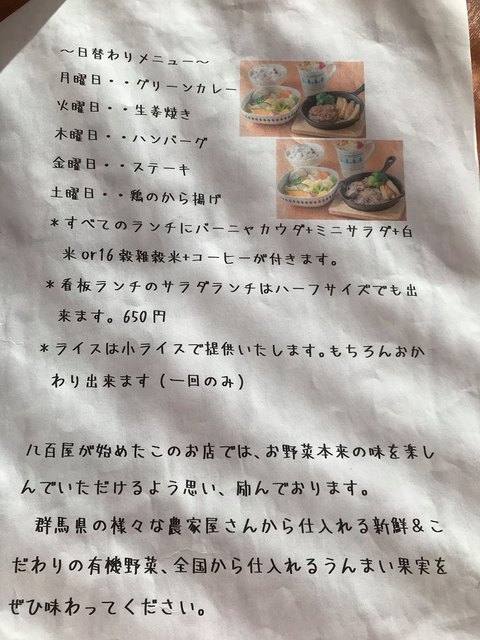 ～日替わりメニュー～
月曜日・・グリーンカレー
火曜日・・生姜焼き
木曜日・・ハンバーグ
金曜日・・ステーキ
土曜日・・鶏のから揚げ
*すべてのランチにバーニャカウダ+ミニサラダ+白
米or16穀雑穀米+コーヒーが付きます。
*看板ランチのサラダランチはハーフサイズでも出
来ます。650円
*ライスは小ライスで提供いたします。もちろんおか
わり出来ます(一回のみ)
八百屋が始めたこのお店では、お野菜本来の味を楽し
んでいただけるよう思い、励んでおります。
群馬県の様々な農家屋さんから仕入れる新鮮&こ
だわりの有機野菜、全国から仕入れるうんまい果実を
ぜひ味わってください。